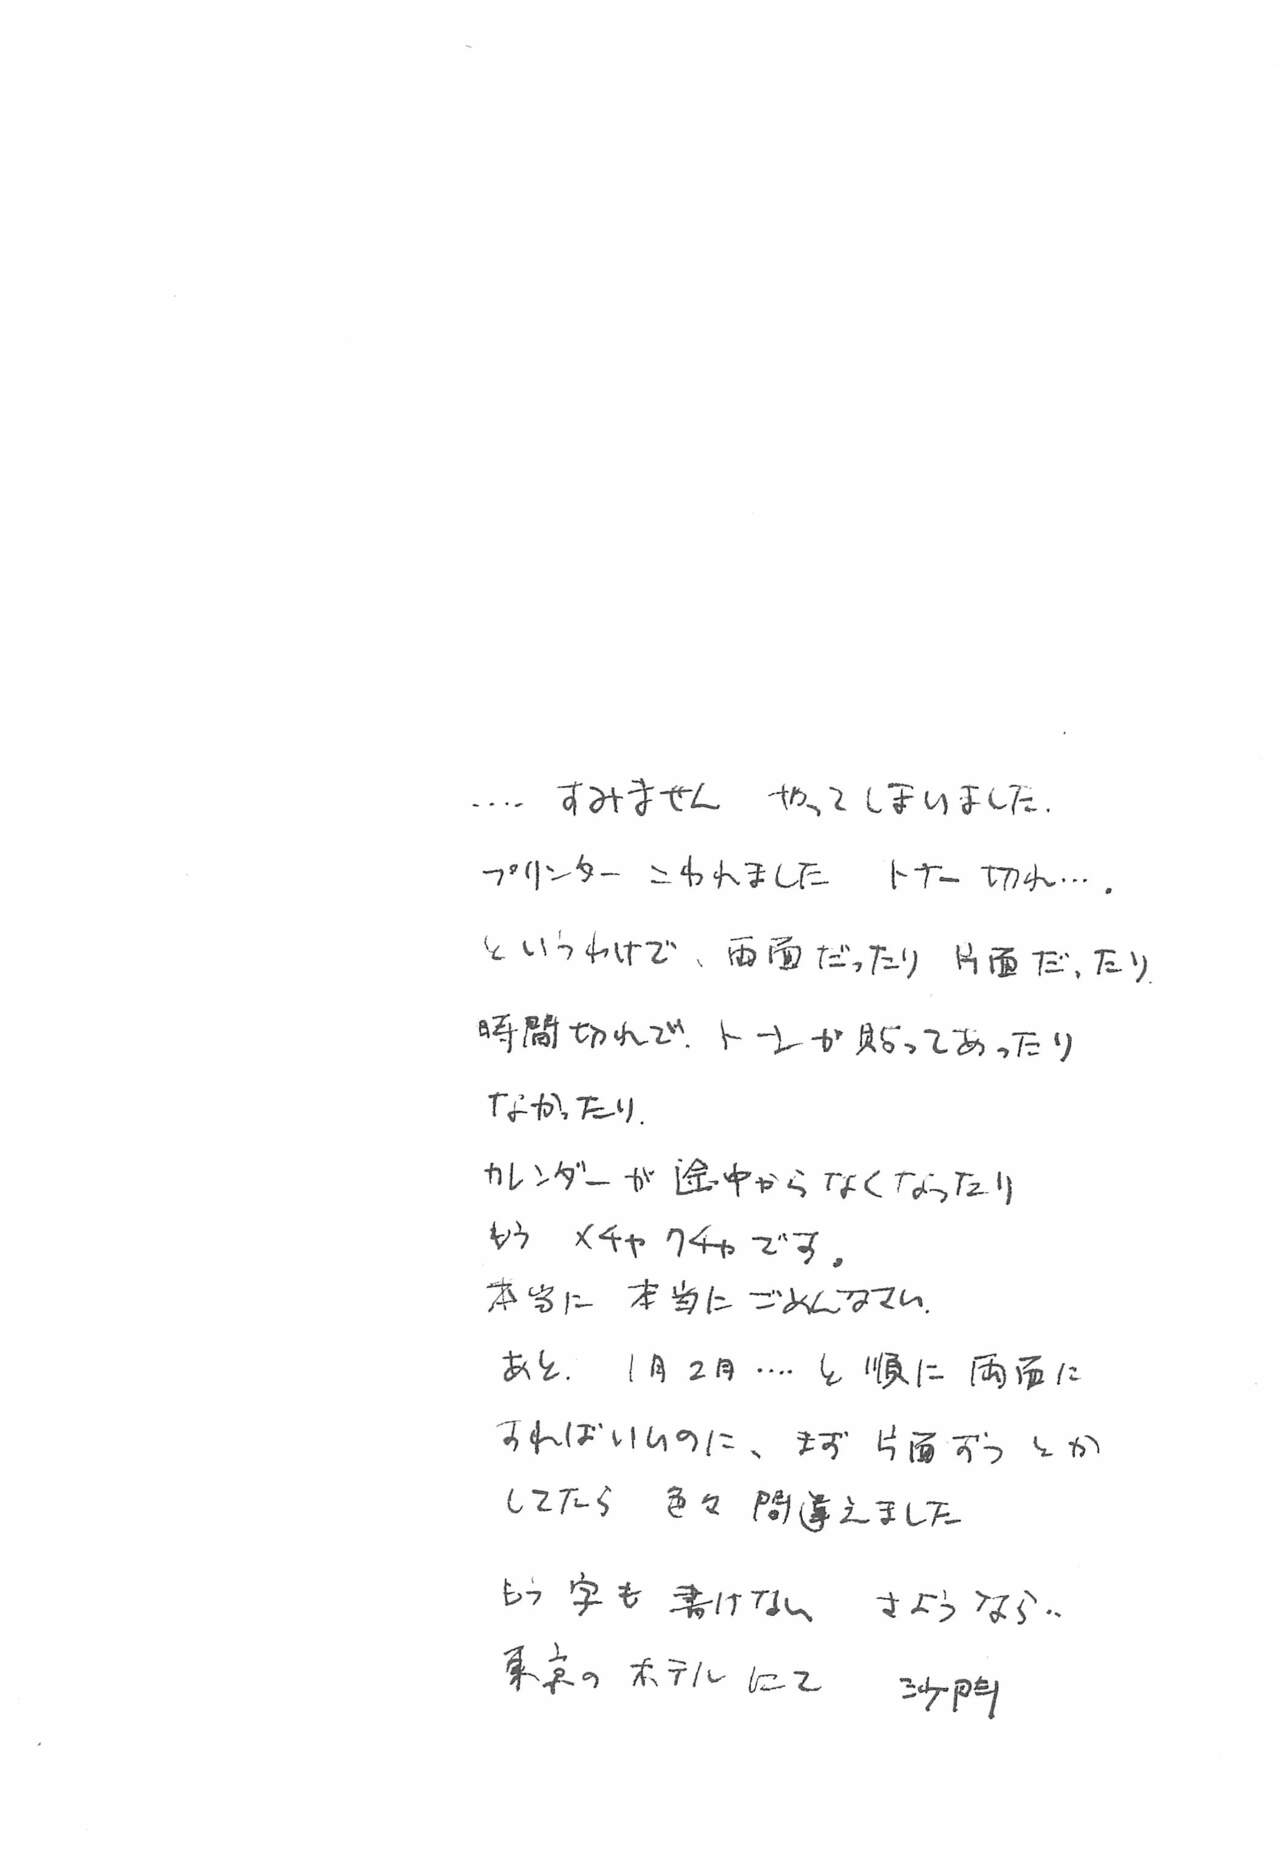 ‥‥ すみません やってしまいました.
プリンターこわれました トナー切れ….
というわけで、両面だったり 片面だったり.
時間切れで. トーンが貼ってあったり
なかったり.
カレンダーが途中からなくなったり
もう メチャクチャです。
本当に 本当にごめんなさい.
あと. 1月2月‥‥と順に両面に
すればいいのに、まず片面ずつとか
してたら 色々間違えました
もう字も書けない さようなら‥
東京のホテルにて 沙門